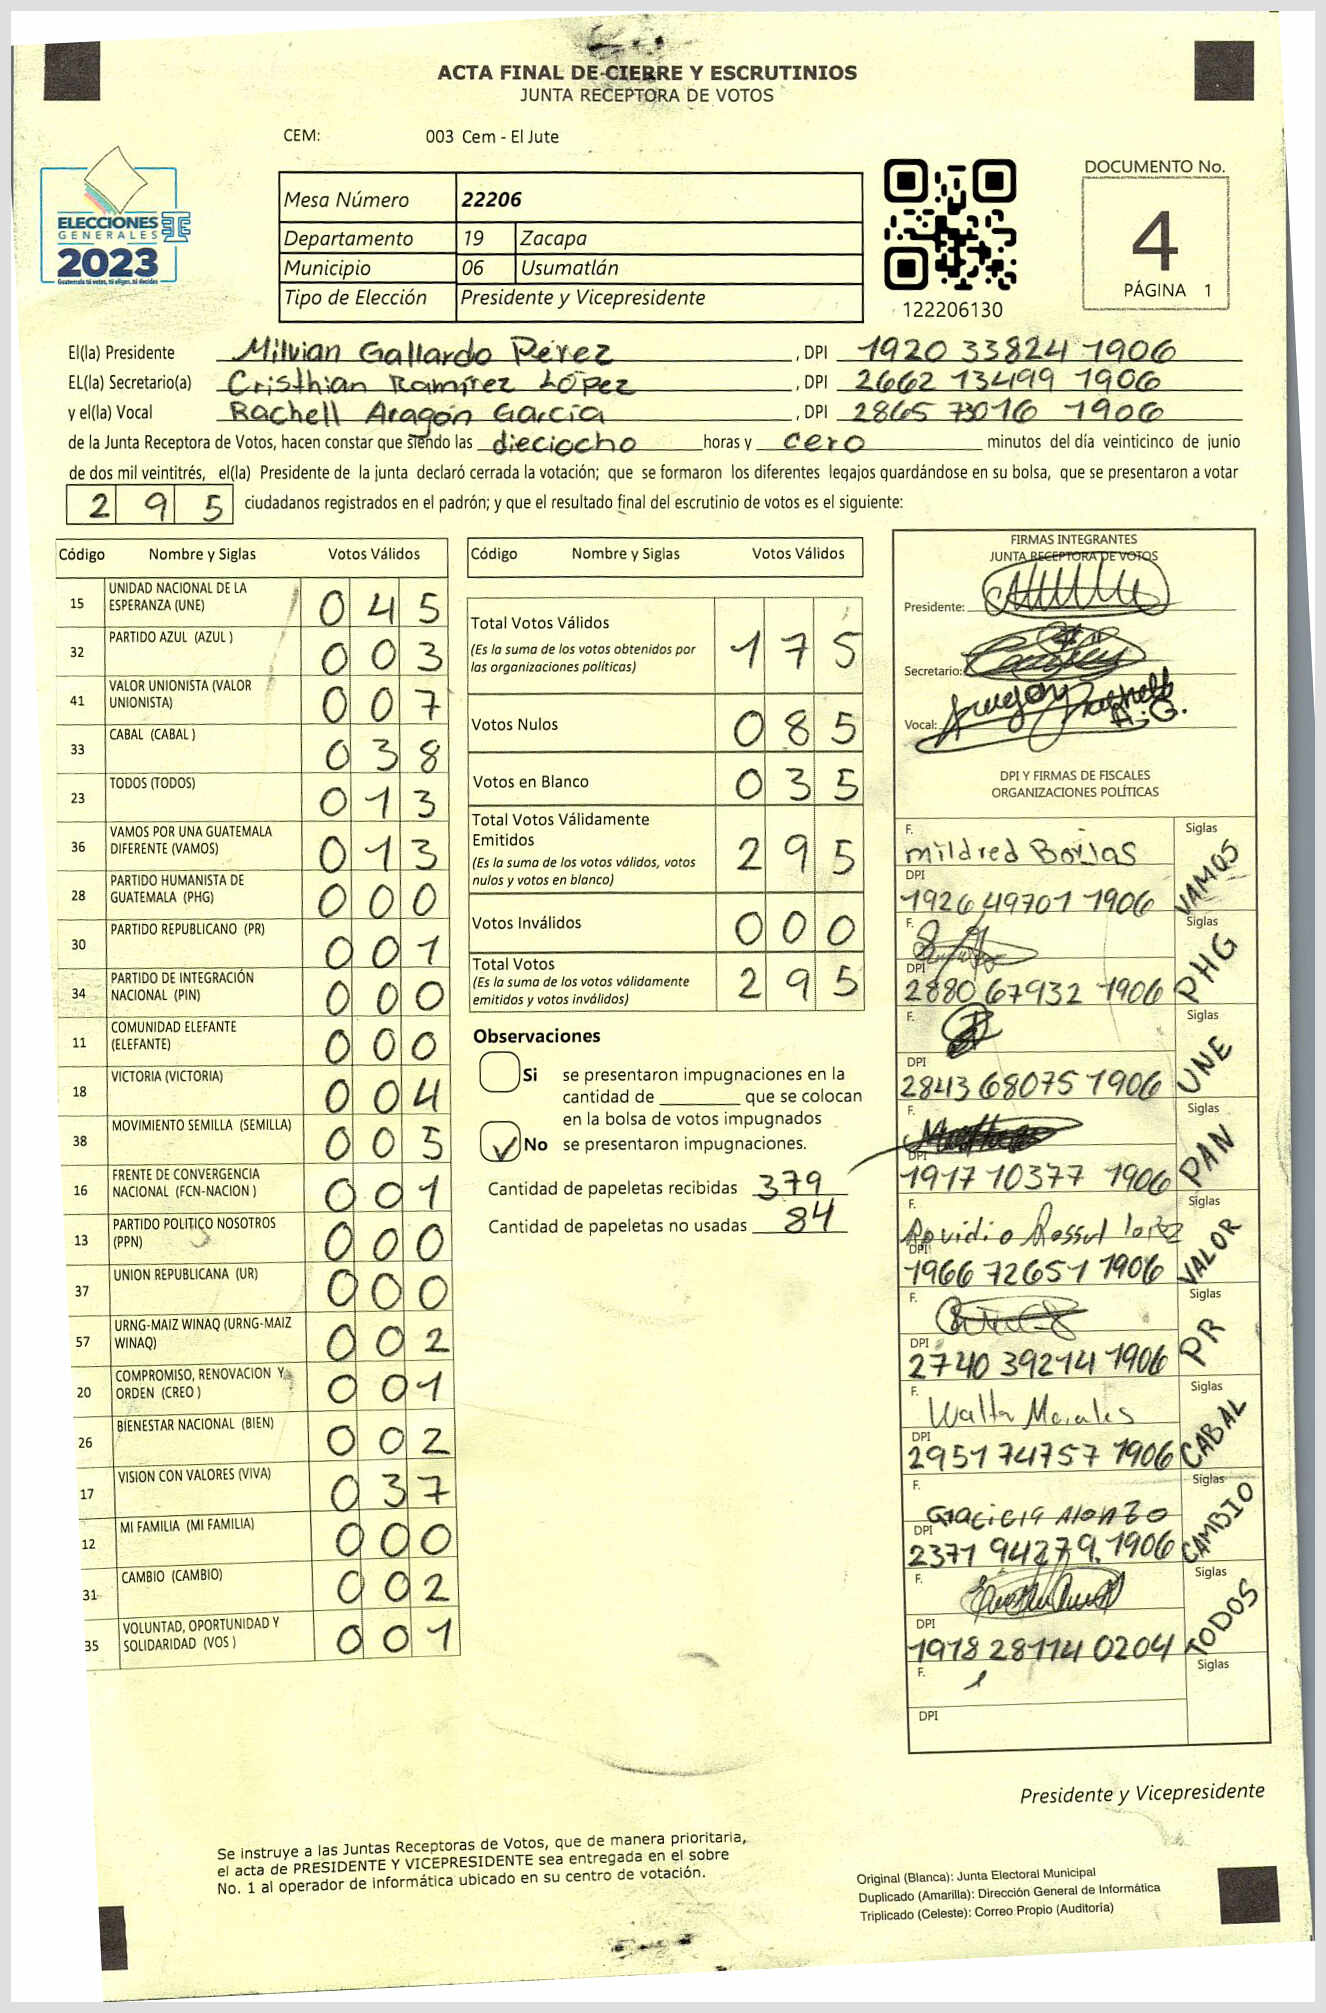 ACTA FINAL DE CIERRE Y ESCRUTINIOS
JUNTA RECEPTORA DE VOTOS
CEM: 003 Cem - El Jute
ELECCIONES
GENERALES
2023
Guatemala tú votas, tú eliges, tú decides
Mesa Número 22206
Departamento 19 Zacapa
Municipio 06 Usumatlán
Tipo de Elección Presidente y Vicepresidente
122206130
DOCUMENTO No.
4
PÁGINA 1
El(la) Presidente Milvian Gallardo Pérez , DPI 1920 33824 1906
EL(la) Secretario(a) Cristhian Ramírez López , DPI 2662 13499 1906
y el(la) Vocal Rachell Aragón García , DPI 2865 73016 1906
de la Junta Receptora de Votos, hacen constar que siendo las dieciocho horas y cero minutos del día veinticinco de junio
de dos mil veintitrés, el(la) Presidente de la junta declaró cerrada la votación; que se formaron los diferentes legajos quardándose en su bolsa, que se presentaron a votar
2 9 5 ciudadanos registrados en el padrón; y que el resultado final del escrutinio de votos es el siguiente:
Código Nombre y Siglas Votos Válidos
15 UNIDAD NACIONAL DE LA ESPERANZA (UNE) 0 4 5
32 PARTIDO AZUL (AZUL ) 0 0 3
41 VALOR UNIONISTA (VALOR UNIONISTA) 0 0 7
33 CABAL (CABAL ) 0 3 8
23 TODOS (TODOS) 0 1 3
36 VAMOS POR UNA GUATEMALA DIFERENTE (VAMOS) 0 1 3
28 PARTIDO HUMANISTA DE GUATEMALA (PHG) 0 0 0
30 PARTIDO REPUBLICANO (PR) 0 0 1
34 PARTIDO DE INTEGRACIÓN NACIONAL (PIN) 0 0 0
11 COMUNIDAD ELEFANTE (ELEFANTE) 0 0 0
18 VICTORIA (VICTORIA) 0 0 4
38 MOVIMIENTO SEMILLA (SEMILLA) 0 0 5
16 FRENTE DE CONVERGENCIA NACIONAL (FCN-NACION ) 0 0 1
13 PARTIDO POLITICO NOSOTROS (PPN) 0 0 0
37 UNION REPUBLICANA (UR) 0 0 0
57 URNG-MAIZ WINAQ (URNG-MAIZ WINAQ) 0 0 2
20 COMPROMISO, RENOVACION Y ORDEN (CREO ) 0 0 1
26 BIENESTAR NACIONAL (BIEN) 0 0 2
17 VISION CON VALORES (VIVA) 0 3 7
12 MI FAMILIA (MI FAMILIA) 0 0 0
31 CAMBIO (CAMBIO) 0 0 2
35 VOLUNTAD, OPORTUNIDAD Y SOLIDARIDAD (VOS ) 0 0 1
Código Nombre y Siglas Votos Válidos
Total Votos Válidos 1 7 5
(Es la suma de los votos obtenidos por
las organizaciones políticas)
Votos Nulos 0 8 5
Votos en Blanco 0 3 5
Total Votos Válidamente
Emitidos 2 9 5
(Es la suma de los votos válidos, votos
nulos y votos en blanco)
Votos Inválidos 0 0 0
Total Votos 2 9 5
(Es la suma de los votos válidamente
emitidos y votos inválidos)
Observaciones
Si se presentaron impugnaciones en la
cantidad de ________ que se colocan
en la bolsa de votos impugnados
No se presentaron impugnaciones.
Cantidad de papeletas recibidas 379
Cantidad de papeletas no usadas 84
FIRMAS INTEGRANTES
JUNTA RECEPTORA DE VOTOS
Presidente:
Secretario:
Vocal: A.G.
DPI Y FIRMAS DE FISCALES
ORGANIZACIONES POLÍTICAS
F. mildred Borjas Siglas VAMOS
DPI 1926 49701 1906
F. Siglas PHG
DPI 2880 67932 1906
F. Siglas UNE
DPI 2843 68075 1906
F. Siglas PAN
DPI 1917 10377 1906
F. Siglas VALOR
DPI 1966 72651 1906
F. Siglas PR
DPI 2740 39214 1906
F. Walter Morales Siglas CABAL
DPI 2951 74757 1906
F. Graciela Alonzo Siglas CAMBIO
DPI 2371 94279 1906
F. Siglas TODOS
DPI 1978 28114 0204
F. Siglas
DPI
Presidente y Vicepresidente
Se instruye a las Juntas Receptoras de Votos, que de manera prioritaria,
el acta de PRESIDENTE Y VICEPRESIDENTE sea entregada en el sobre
No. 1 al operador de informática ubicado en su centro de votación.
Original (Blanca): Junta Electoral Municipal
Duplicado (Amarilla): Dirección General de Informática
Triplicado (Celeste): Correo Propio (Auditoria)